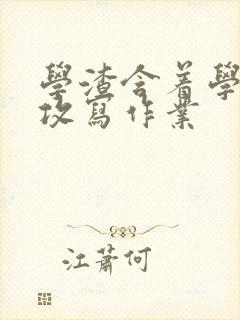 學渣含着學
攻寫作業
江蕭何